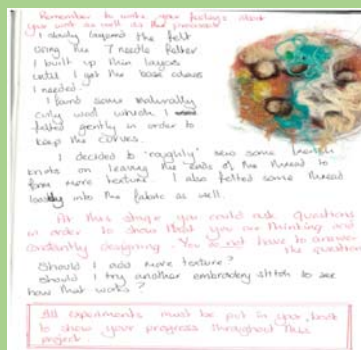 Remember to write your feelings about
your work as well as the processes
I slowly layered the felt
using the 7 needle felter
I built up thin layers
until I got the base colours
I needed.
I found some naturally
curly wool which I
felted gently in order to
keep the curves.
I decided to 'roughly' sew some french
knots on leaving the ends of the thread to
form more texture. I also felted some thread
loosely into the fabric as well.
At this stage you could ask questions
in order to show that you are thinking and
constantly designing. You do not have to answer
the questions
Should I add more texture?
Should I try another embroidery stitch to see
how that works?
All experiments must be put in your book
to show your progress throughout this
project.